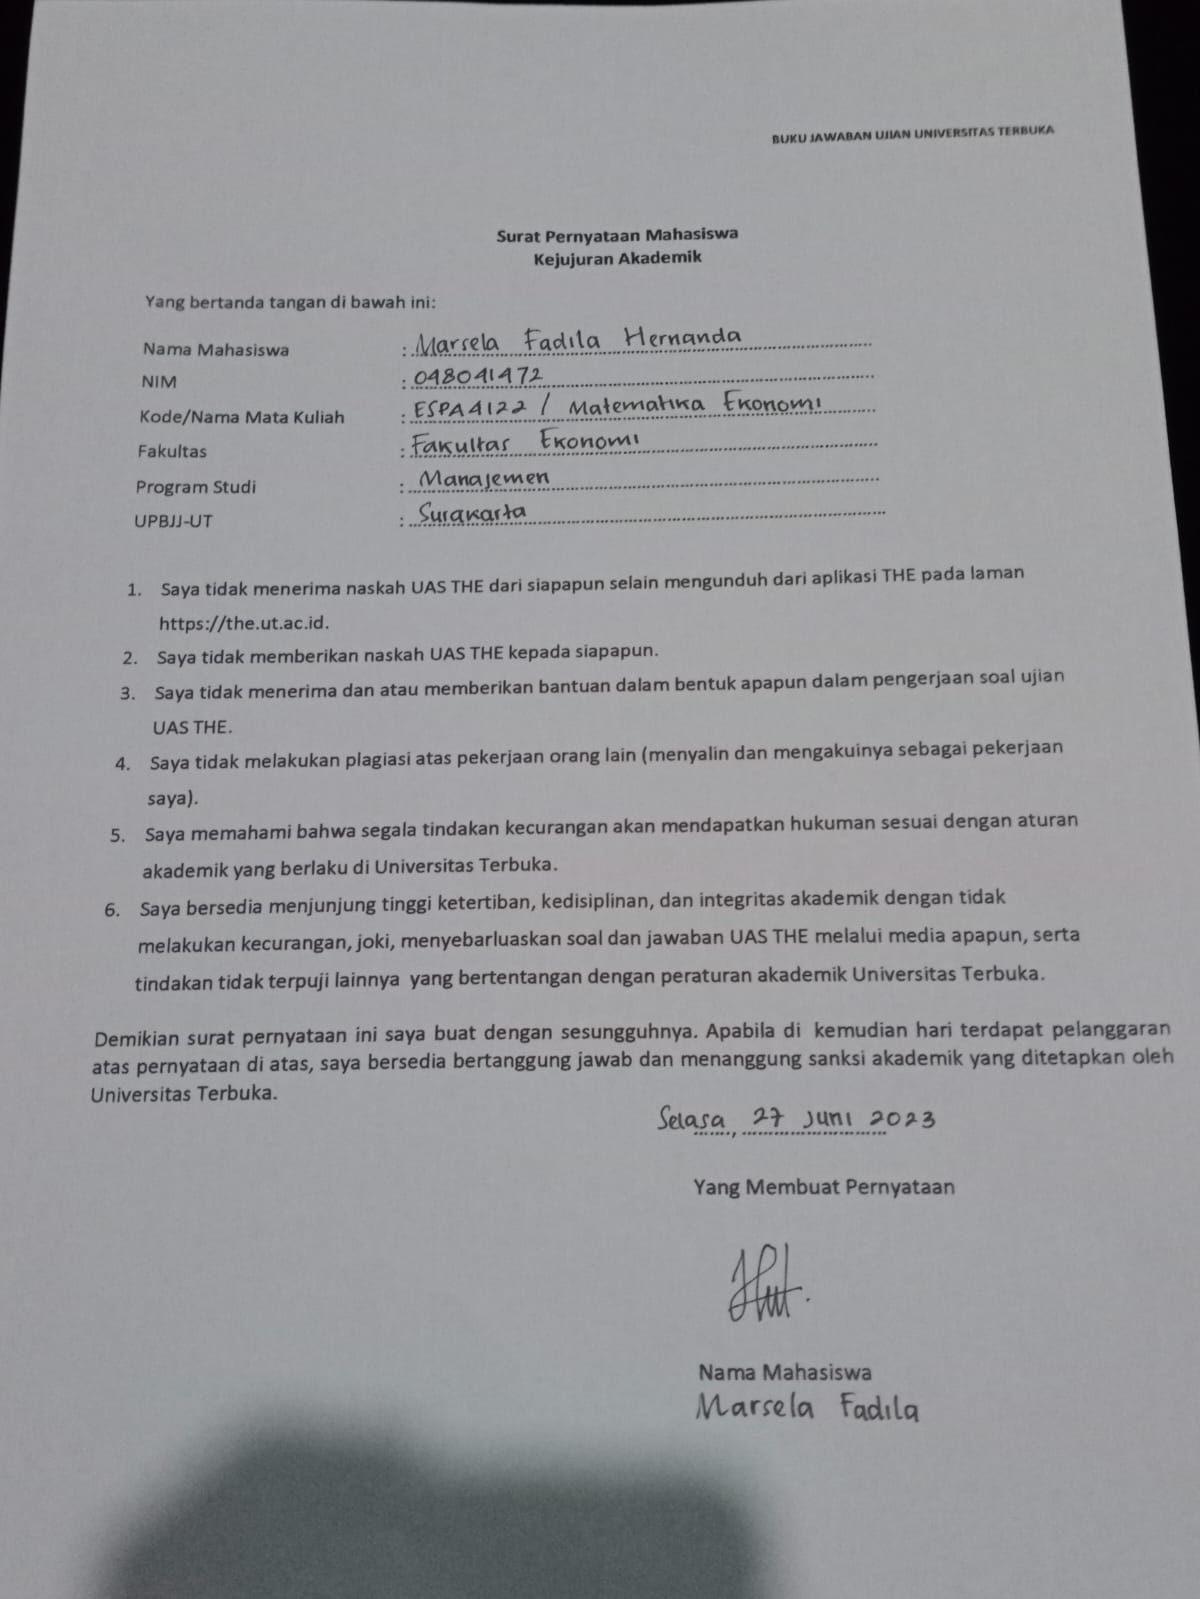 BUKU JAWABAN UJIAN UNIVERSITAS TERBUKA
Surat Pernyataan Mahasiswa
Kejujuran Akademik
Yang bertanda tangan di bawah ini:
Nama Mahasiswa : Marsela Fadila Hernanda
NIM : 048041472
Kode/Nama Mata Kuliah : ESPA4122 / Matematika Ekonomi
Fakultas : Fakultas Ekonomi
Program Studi : Manajemen
UPBJJ-UT : Surakarta
1. Saya tidak menerima naskah UAS THE dari siapapun selain mengunduh dari aplikasi THE pada laman
https://the.ut.ac.id.
2. Saya tidak memberikan naskah UAS THE kepada siapapun.
3. Saya tidak menerima dan atau memberikan bantuan dalam bentuk apapun dalam pengerjaan soal ujian
UAS THE.
4. Saya tidak melakukan plagiasi atas pekerjaan orang lain (menyalin dan mengakuinya sebagai pekerjaan
saya).
5. Saya memahami bahwa segala tindakan kecurangan akan mendapatkan hukuman sesuai dengan aturan
akademik yang berlaku di Universitas Terbuka.
6. Saya bersedia menjunjung tinggi ketertiban, kedisiplinan, dan integritas akademik dengan tidak
melakukan kecurangan, joki, menyebarluaskan soal dan jawaban UAS THE melalui media apapun, serta
tindakan tidak terpuji lainnya yang bertentangan dengan peraturan akademik Universitas Terbuka.
Demikian surat pernyataan ini saya buat dengan sesungguhnya. Apabila di kemudian hari terdapat pelanggaran
atas pernyataan di atas, saya bersedia bertanggung jawab dan menanggung sanksi akademik yang ditetapkan oleh
Universitas Terbuka.
Selasa, 27 Juni 2023
Yang Membuat Pernyataan
Nama Mahasiswa
Marsela Fadila